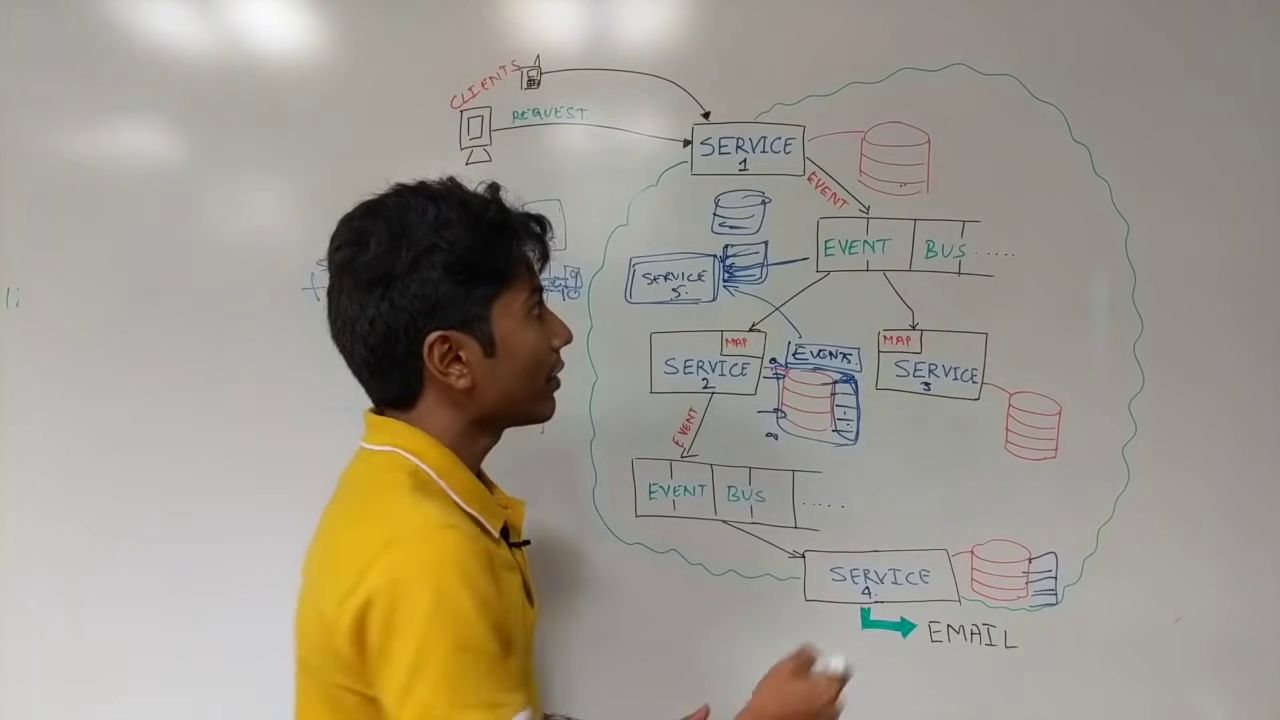 CLIENTS
REQUEST
SERVICE
1
EVENT
EVENT BUS ......
SERVICE
5.
MAP
SERVICE
2
EVENTS.
MAP
SERVICE
3
EVENT
EVENT BUS ......
SERVICE
4.
EMAIL